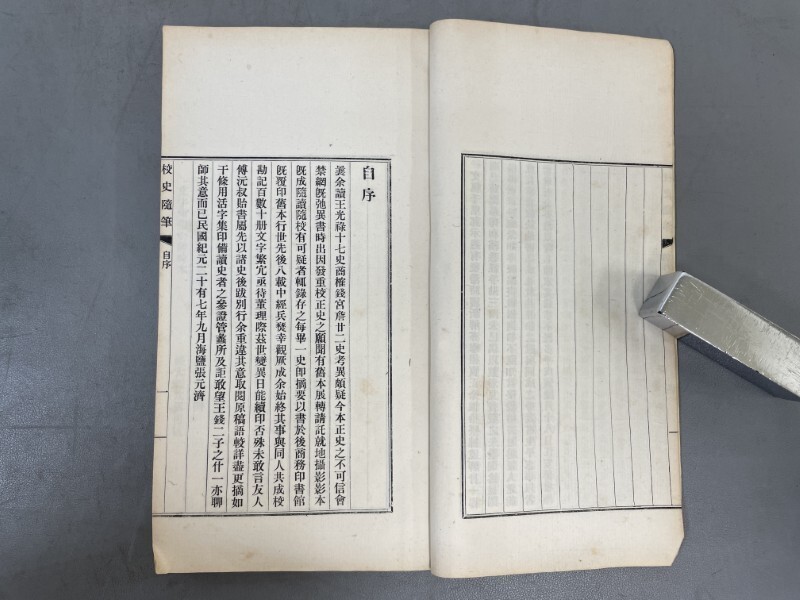 自序
曩余讀王光祿十七史商榷錢宮詹廿二史考異頗疑今本正史之不可信會
禁網既弛異書時出因發重校正史之願聞有舊本展轉請託就地攝影影本
既成隨讀隨校有可疑者輒錄存之每畢一史即摘要以書於後商務印書館
既覆印舊本行世先後八載中經兵燹幸觀厥成余始終其事與同人共成校
勘記百數十册文字繁宂亟待董理際茲世變異日能續印否殊未敢言友人
傅沅叔貽書屬先以諸史後跋別行余重違其意取閱原稿語較詳盡更摘如
干條用活字集印備讀史者之參證管蠡所及詎敢望王錢二子之什一亦聊
師其意而已民國紀元二十有七年九月海鹽張元濟
校史隨筆
自序